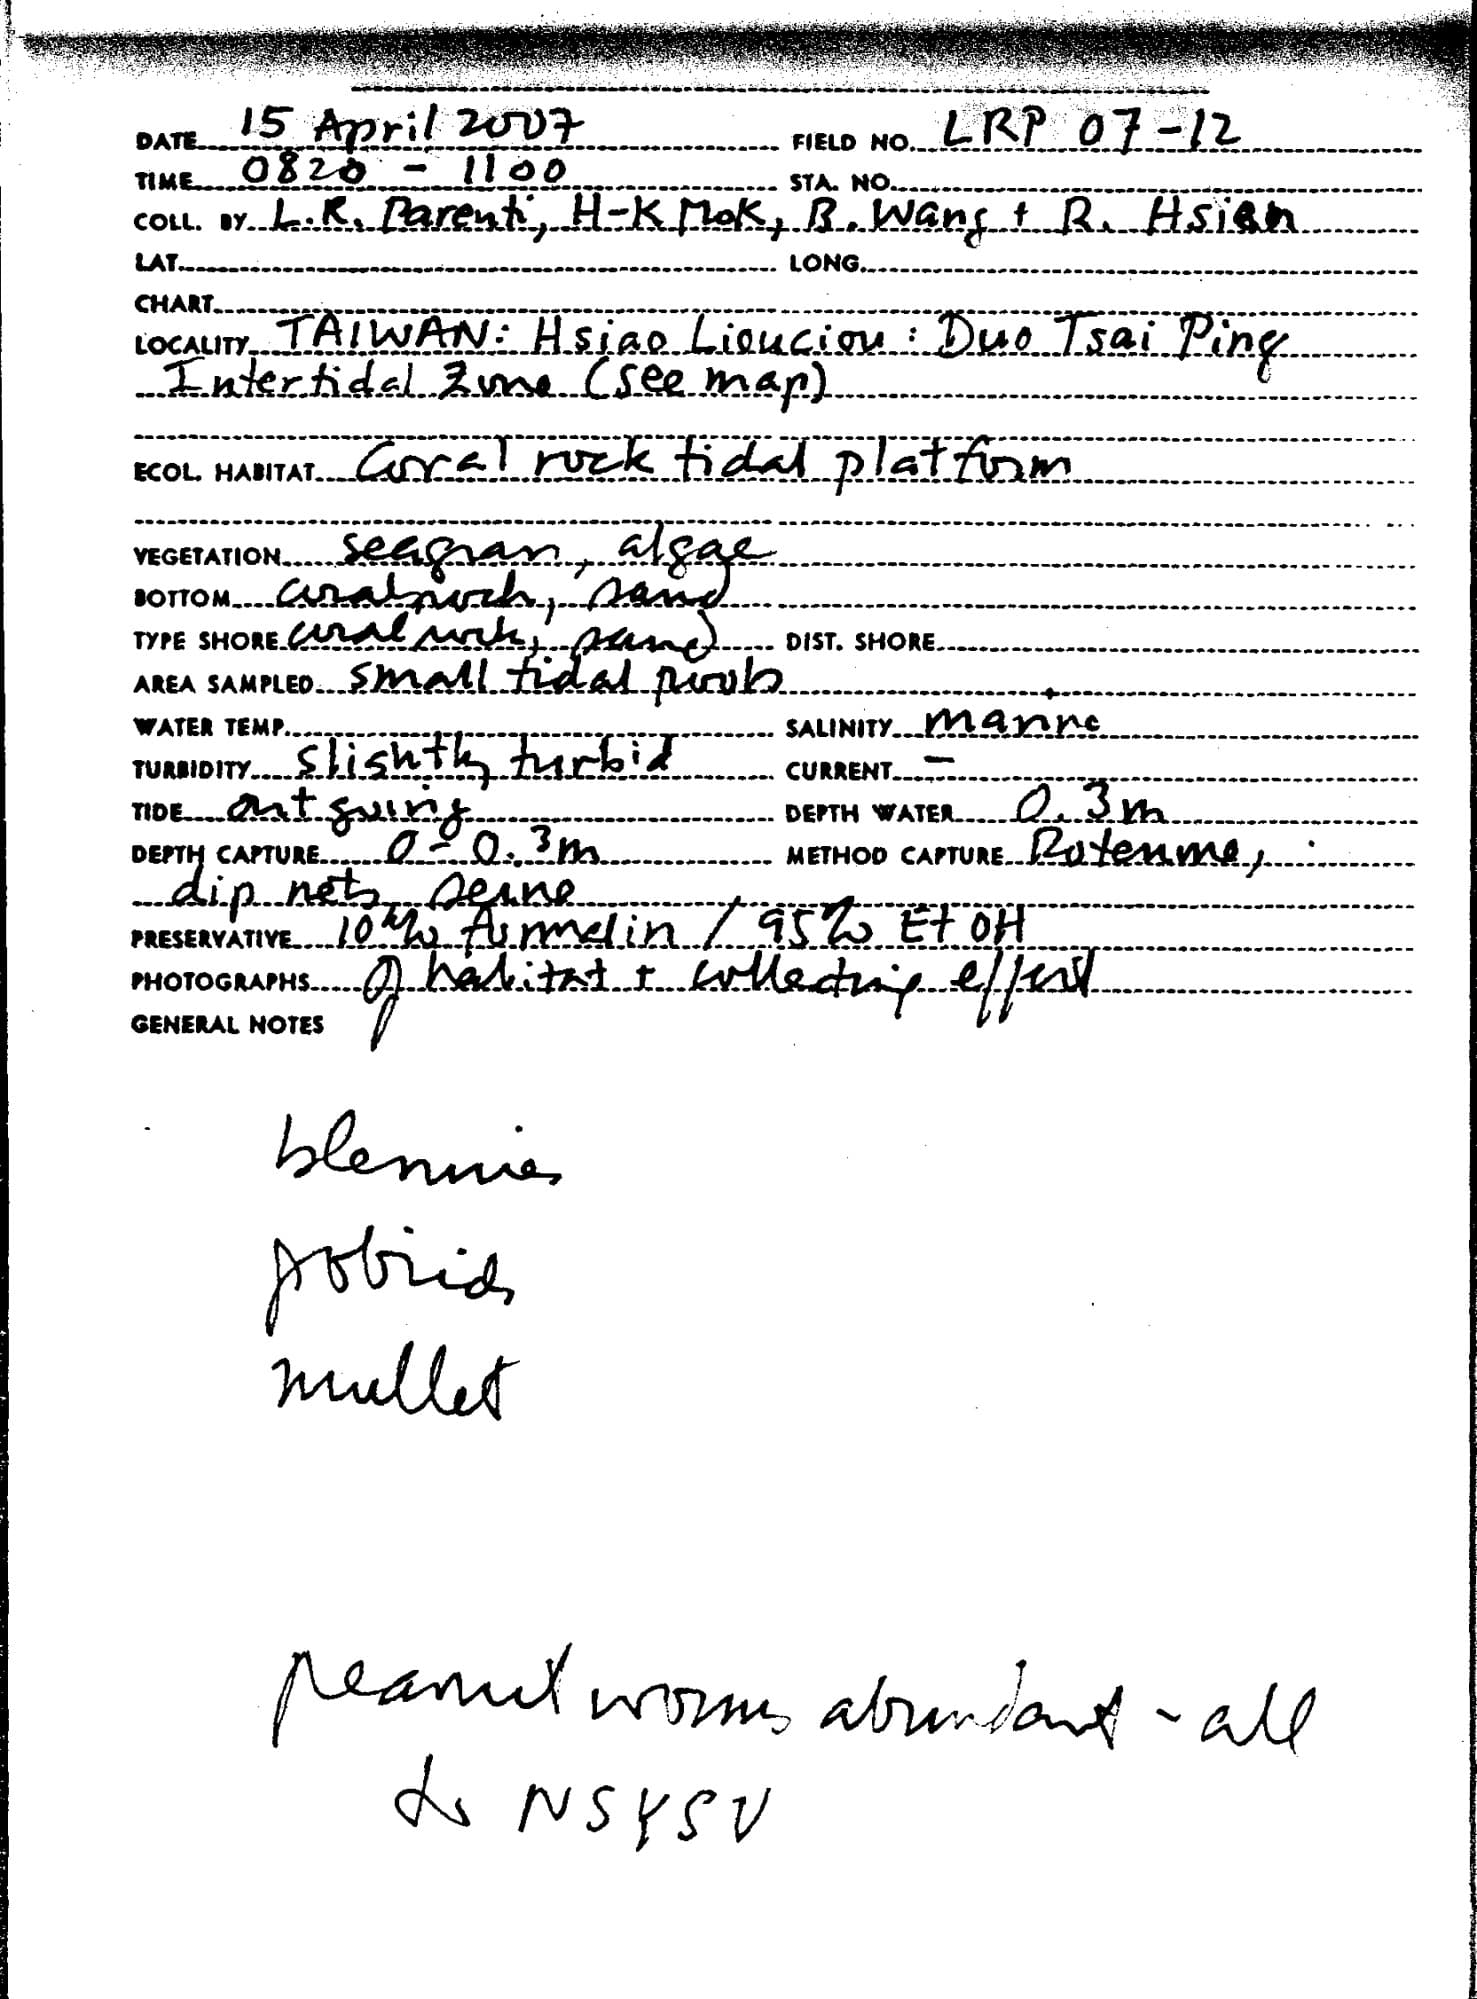 DATE 15 April 2007 FIELD NO. LRP 07-12
TIME 0820 - 1100 STA. NO.
COLL. BY L.R. Parenti, H-K Mok, B. Wang + R. Hsieh
LAT. LONG.
CHART
LOCALITY TAIWAN: Hsiao Liouciou: Duo Tsai Ping
Intertidal Zone (see map)
ECOL. HABITAT Coral rock tidal platform
VEGETATION seagrass, algae
BOTTOM coral rock, sand
TYPE SHORE coral rock, sand DIST. SHORE
AREA SAMPLED small tidal pools
WATER TEMP. SALINITY marine
TURBIDITY slightly turbid CURRENT –
TIDE outgoing DEPTH WATER 0.3m
DEPTH CAPTURE 0-0.3m METHOD CAPTURE Rotenone,
dip nets, seine
PRESERVATIVE 10% formalin / 95% EtOH
PHOTOGRAPHS of habitat + collecting effort
GENERAL NOTES
blennies
gobiids
mullet
peanut worms abundant - all
to NSYSU